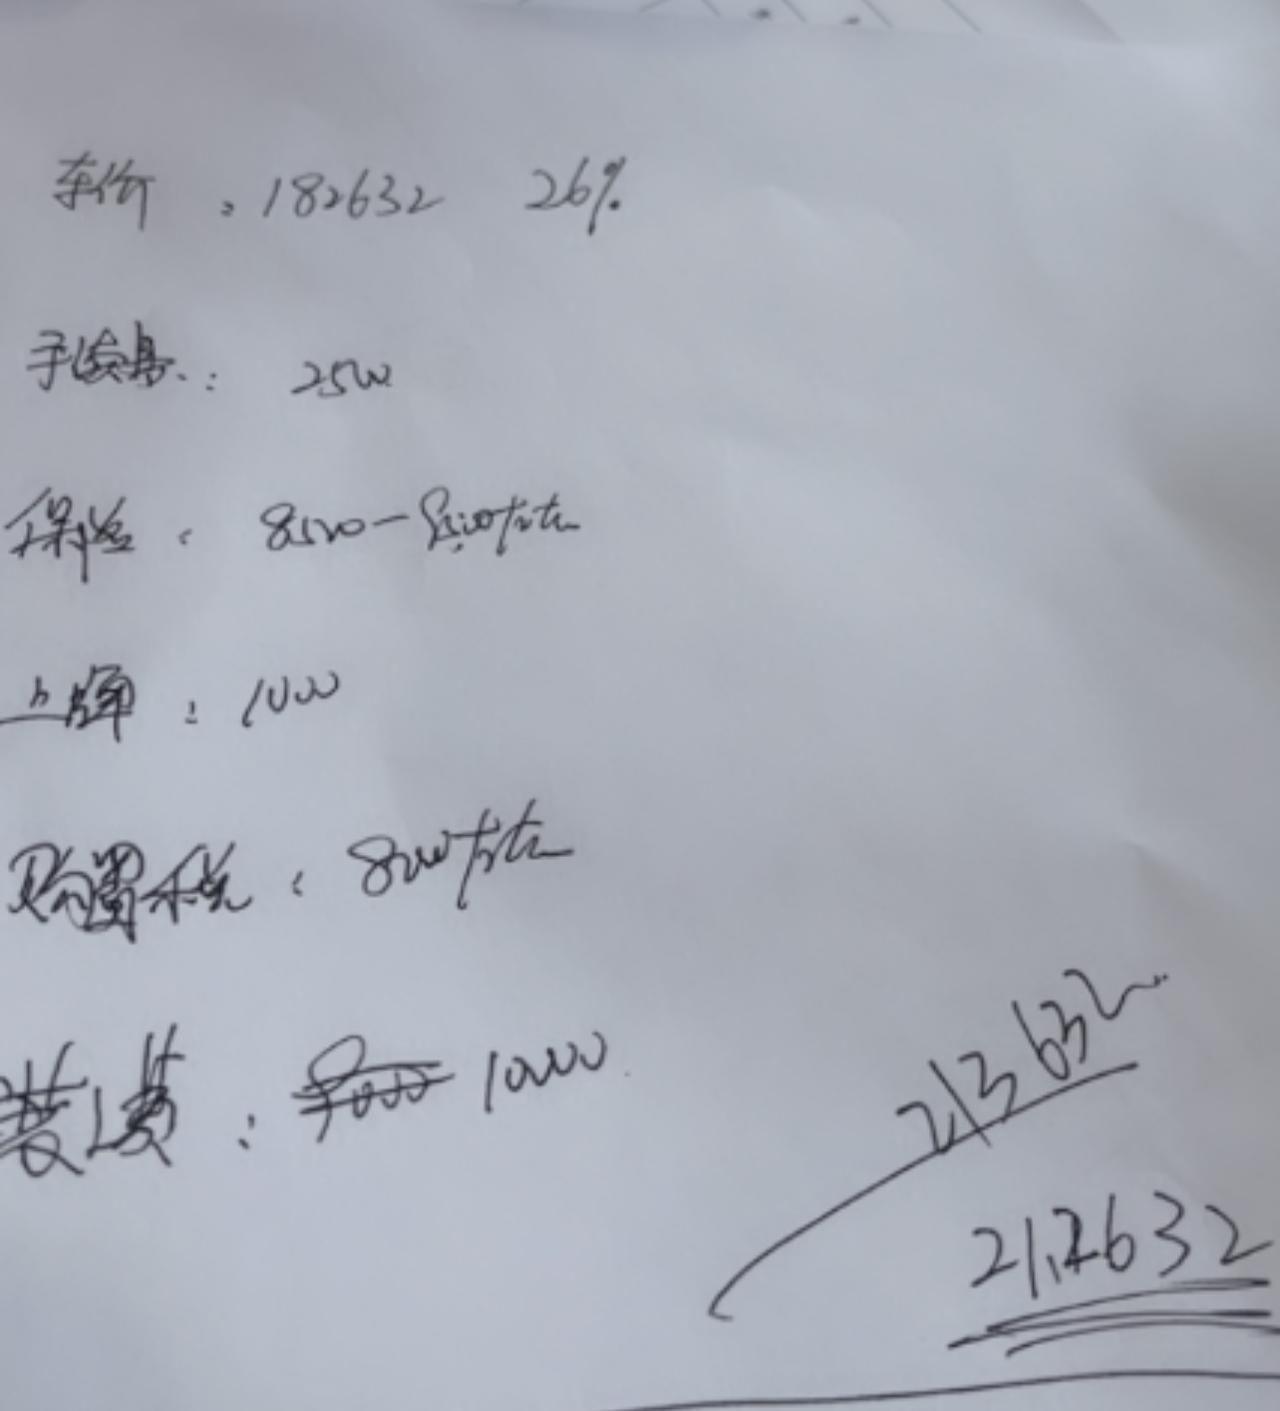 车价：182632 26%
手续费：2500
保险：8500-8500左右
上牌：1000
购置税：8000左右
装潢：8000 10000
213632
212632